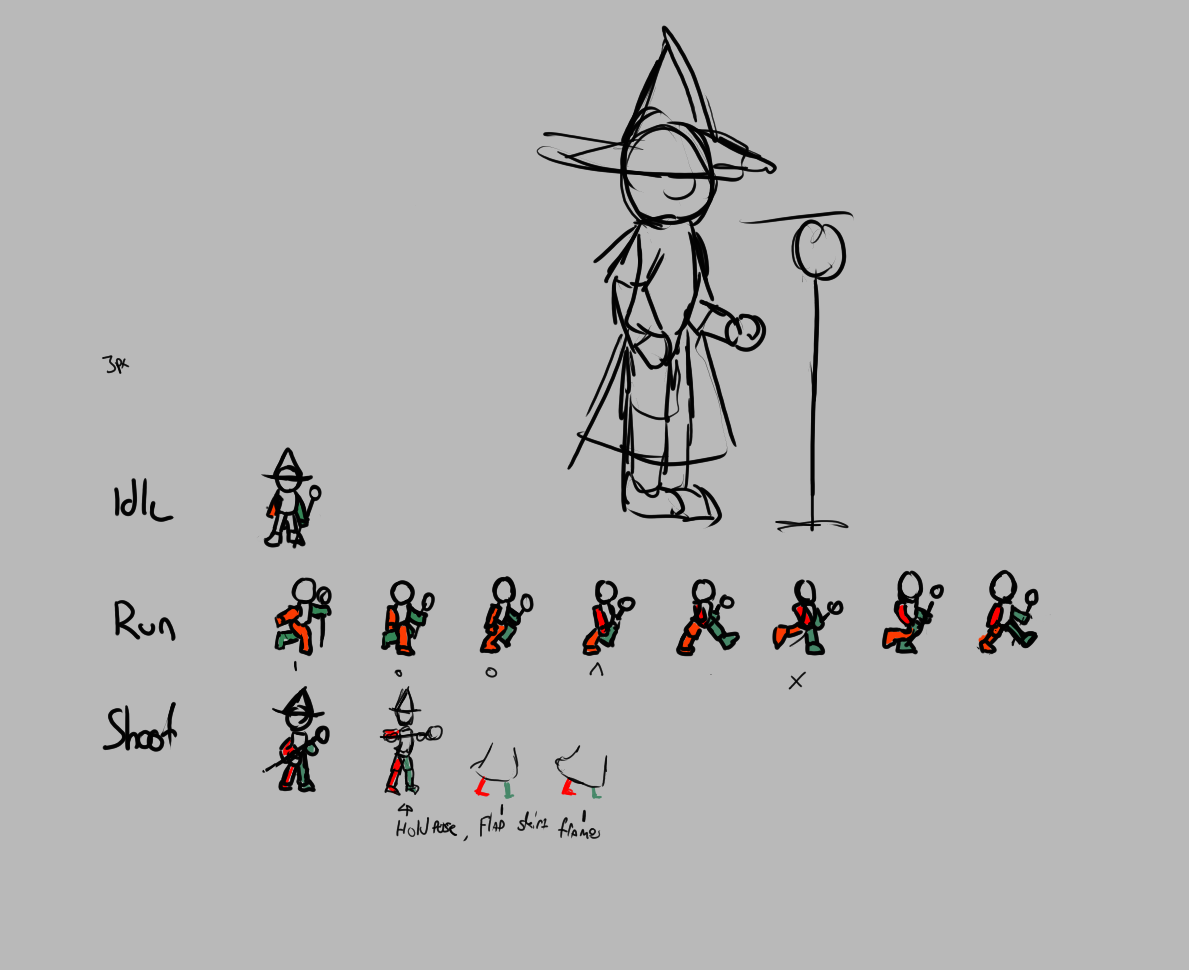 3px
Idle
Run
Shoot
Hold Pose, Flap skirt frames